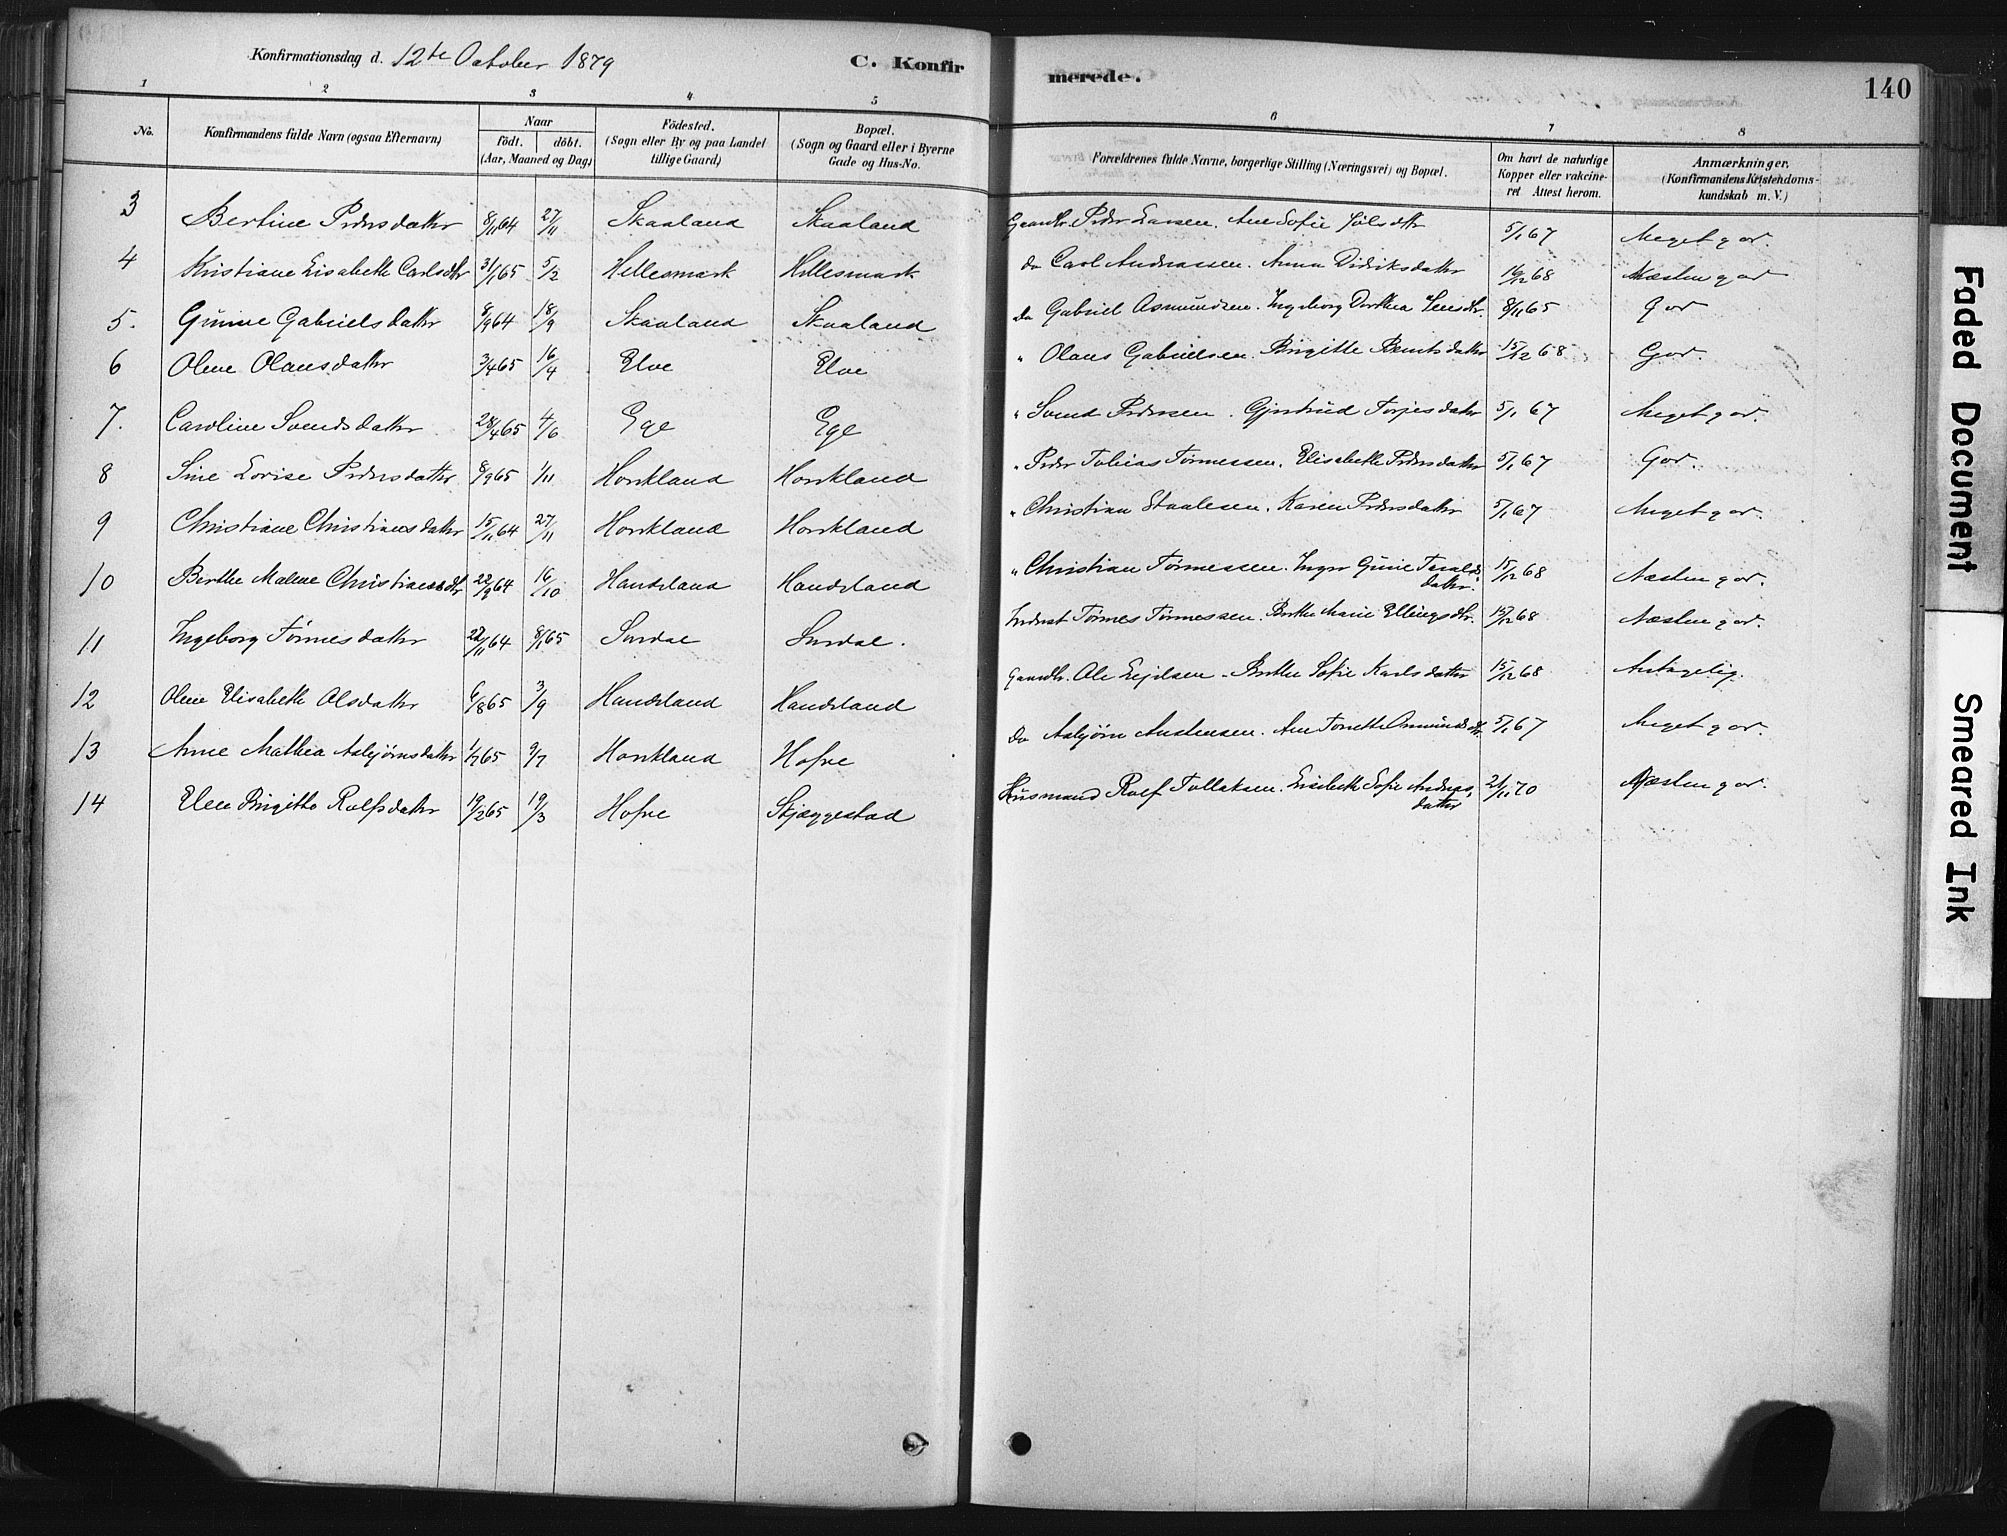 Konfirmationsdag d. 12te October 1879
C. Konfirmerede.
140
1 2 3 4 5 6 7 8
No.
Konfirmandens fulde Navn (ogsaa Efternavn)
Naar
födt. döbt.
(Aar, Maaned og Dag)
Födested.
(Sogn eller By og paa Landet
tillige Gaard)
Bopæl.
(Sogn og Gaard eller i Byerne
Gade og Hus-No.
Forældrenes fulde Navne, borgerlige Stilling (Næringsvei) og Bopæl.
Om havt de naturlige
Kopper eller vakcine-
ret Attest herom.
Anmærkninger.
(Konfirmandens Kristendoms-
kundskab m. V.)
3 Bertine Pedersdatter 8/11 64 27/11 Skaaland Skaaland Gaardbr. Peder Larsen. Ane Sofie 5/1 67 Meget god.
4 Kristiane Lisabeth Carlsdtr 31/1 65 5/2 Hellesmark Hellesmark do Carl Andreassen. Anna Didriksdatter 16/12 68 Næsten god
5. Gunine Gabrielsdatter 8/9 64 18/9 Skaaland Skaaland do Gabriel Asmundsen. Ingeborg Dorthea Jensdtr. 8/11 65 God
6 Olene Olausdatter 3/4 65 16/4 Elve Elve " Olaus Gabrielsen. Birgitte Berntsdatter 15/12 68 God.
7. Caroline Svendsdatter 28/4 65 4/6 Ege Ege " Svend Pedersen. Gjertrud Torjesdatter 5/1 67 Meget god.
8 Sine Lovise Pedersdatter 8/9 65 1/11 Honkland Honkland " Peder Tobias Tønnessen. Elisabeth Pedersdatter 5/1 67 God.
9 Christiane Christiansdatter 15/11 64 27/11 Honkland Honkland " Christian Staalesen. Karen Pedersdatter 5/1 67 Meget god.
10 Berthe Malene Christiansdtr 22/9 64 16/10 Handeland Handeland " Christian Tønnessen. Inger Gurie Taralds
datter. 15/12 68 Næsten god.
11 Ingeborg Tønnesdatter 22/11 64 8/1 65 Surdal Surdal. Inderst Tønnes Tønnessen. Berthe Marie Ellingsdtr. 15/12 68 Næsten god.
12 Olene Elisabeth Olsdatter 6/8 65 3/9 Handeland Handeland Gaardbr. Ole Eejelsen. Berthe Sofie Karlsdatter 15/12 68 Antagelig.
13 Anne Mathea Asbjørnsdatter 1/7 65 9/7 Honkland Hofve do Asbjørn Austensen. Ane Tonette Osmundsdtr. 5/1 67 Meget god.
14 Elen Birgitte Rolfsdatter 19/2 65 19/3 Hofve Skjæggestad Husmand Rolf Tollaksen. Lisebeth Sofie Andreas,
datter 2/1 70 Næsten god.
Faded Document
Smeared Ink